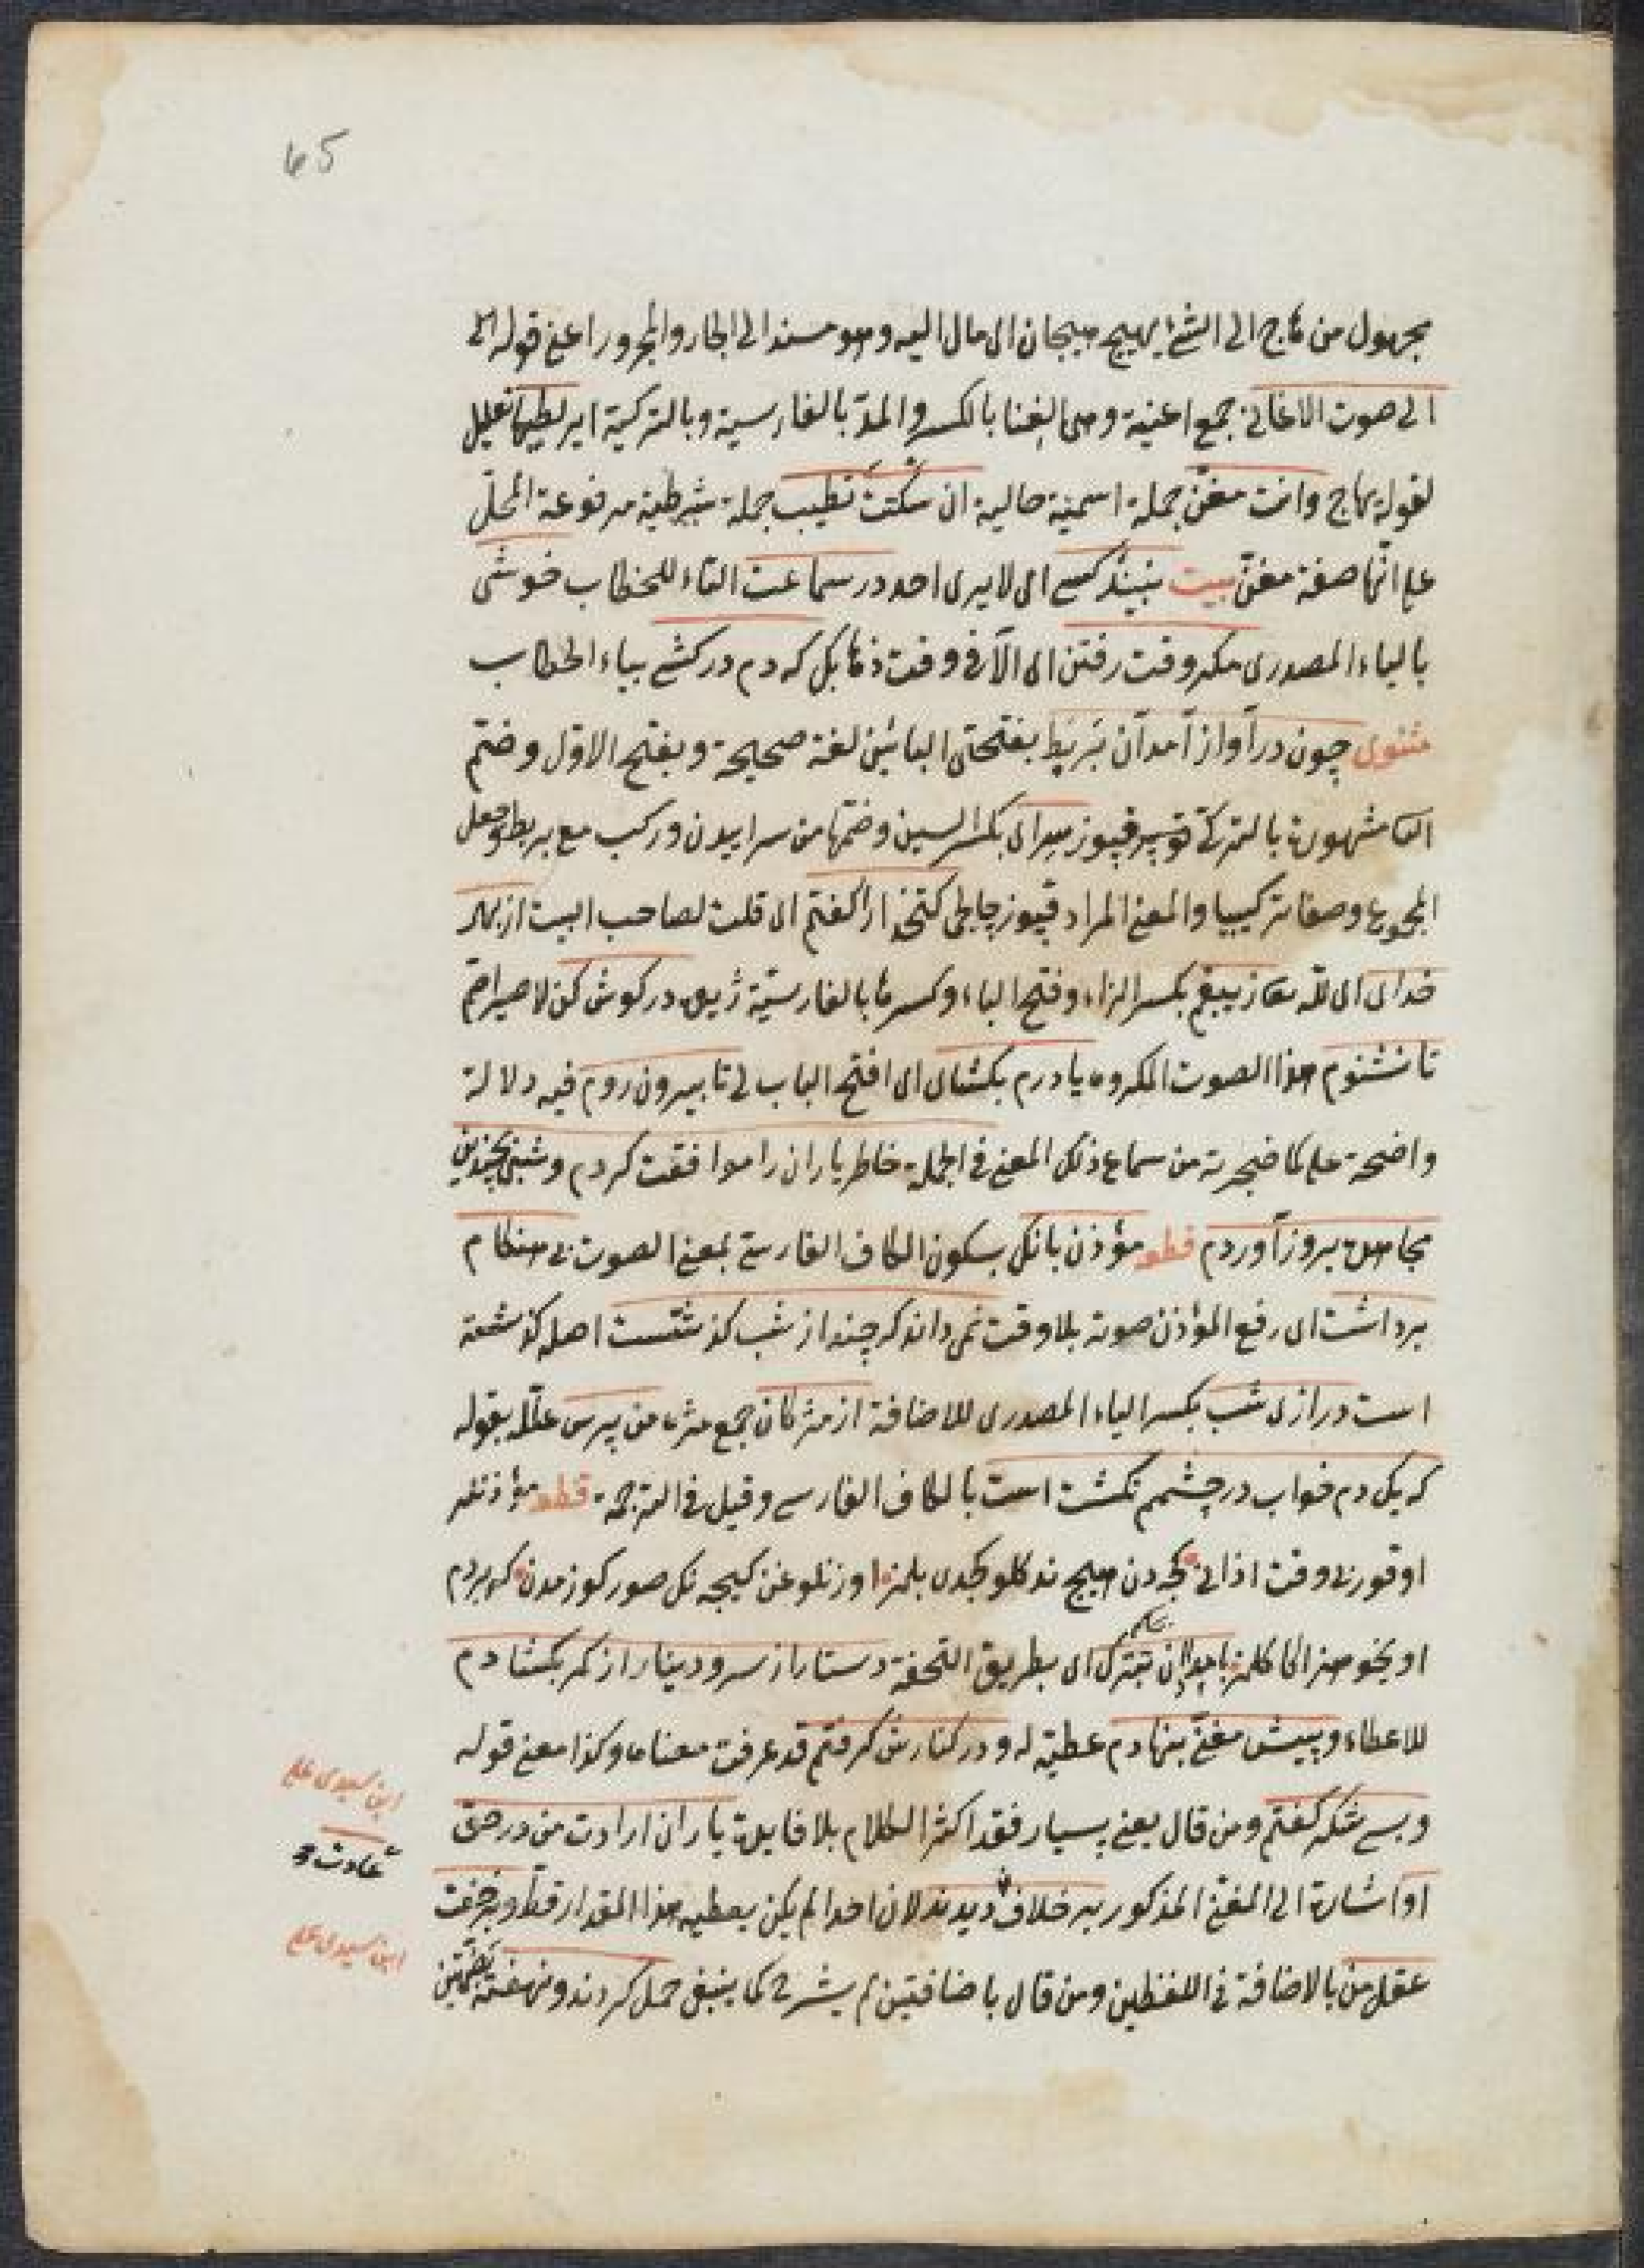 65
مجهول من هاج الى الشئ يهيج هيجان اى مال اليه وهو مسند الى الجار والمجرور اعنى قوله الى
الى صوت الاغانى جمع اغنية وهى الغنا بالكسر والمد بالفارسية وبالتركية ايرلطيها تعليل
لقوله يهاج وانت مغن جملة اسمية حالية ان سكت نطيب جملة شرطية مرفوعة المحل
على انها صفة مغن بيت نبيند كسى اى لا يرى احد در سماعت التاء للخطاب خوشى
بالياء المصدرى مكر وقت رفتن اى الا فى وقت ذهابك كه دم دركشى بياء الخطاب
مثنوى چون در آواز آمد آن بربط بفتحتى البائين لغة صحيحة وبفتح الاول وضم
الثا مشهورة بالتركى قوپيز قپوز سراى بكسر السين وضمها من سراييدن وركب مع بربط وجعل
المجموع وصفا تركيبيا والمعنى المراد قپوز چالجى كتخدا را كفتم اى قلت لصاحب البيت از بهر
خداى اى لله تعا زيبقم بكسر الزاء وفتح الباء وكسرها بالفارسية ژيوه در كوش كن لاصير اصم
تا نشنوم هذا الصوت المكروه يا درم بكشاى اى افتح الباب لى تا بيرون روم فيه دلالة
واضحة على كما ضجرته من سماع ذلك المعنى فى الجملة خاطر ياران را موافقت كردم وشبى بچندين
مجاهده بروز آوردم قطعه مؤذن بانك بسكون الكاف الفارسى بمعنى الصوت بى هنكام
برداشت اى رفع المؤذن صوته بلا وقت نمى داند كه چند از شب كذشتست اصله كذشته
است درازى شب بكسر الياء المصدرى للاضافة از مژكان جمع مژه من پرس علله بقوله
كه يك دم خواب در چشمم نكشت است بالكاف الفارسى وقيل فى الترجمه قطعه مؤذن
اوقور بى وقت اذانى كجه دن هيچ نه كلو كجدى بلمز اوزنلوغن كيجه نك صور كوزمدن كه بر دم
اويخو هنر الكا كلمز بامدادان تبرك اى بطريق التحفة دستار از سر ودينار از كمر بكشادم
للاعطاء وپيش مغنى بنهادم عطية له ودر كنارش كرفتم قد عرفت معناه وكذا معنى قوله
وبسى شكر كفتم ومن قال يعنى بسيار فقد اكثر الكلام بلا فايدة ياران ارادت من در حق
او اشارة الى المغنى المذكور بر خلاف ديدند لان احدا لم يكن يعطيه هذا المقدار قط وبر خفت
عقل من بالاضافة فى اللفظين ومن قال باضافتين لم يشرح كما ينبغى حمل كردند ونهفته بضمتين
ابن سيدى على
عادت
ابن سيدى على